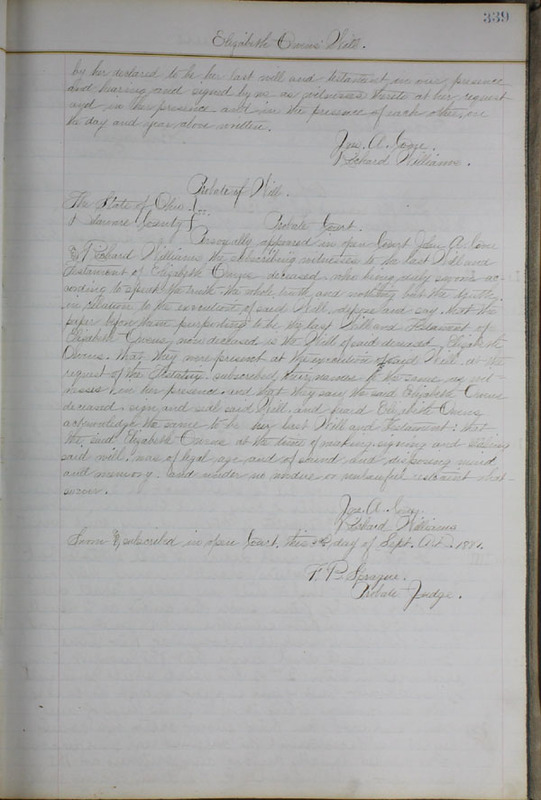 339
Elizabeth Owens' Will.
by her declared to be her last will and testament in our presence
and hearing and signed by us as witnesses thereto at her request
and in her presence and in the presence of each other, on
the day and year above written.
Jno. A. Cone.
Richard Williams.
Probate of Will.
The State of Ohio
Delaware County Probate Court.
Personally appeared in open Court John A. Cone
& Richard Williams the subscribing witnesses to the last Will and
Testament of Elizabeth Owens deceased, who being duly sworn ac-
cording to speak the truth the whole truth and nothing but the truth,
in relation to the execution of said Will, depose and say, that the
paper before them purporting to be the last Will and Testament of
Elizabeth Owens, now deceased is the Will of said deceased Elizabeth
Owens. that they were present at the execution of said Will, at the
request of the Testatrix subscribed their names to the same as wit-
nesses in her presence and that they saw the said Elizabeth Owens
deceased sign and seal said Will, and heard Elizabeth Owens
acknowledge the same to be her last Will and Testament: that
the said Elizabeth Owens at the time of making signing and sealing
said will, was of legal age and of sound and disposing mind
and memory. and under no undue or unlawful restraint what-
soever.
Jno. A. Cone
Richard Williams
Sworn & subscribed in open Court, this day of Sept. A.D. 1881.
F. P. Sprague.
Probate Judge.